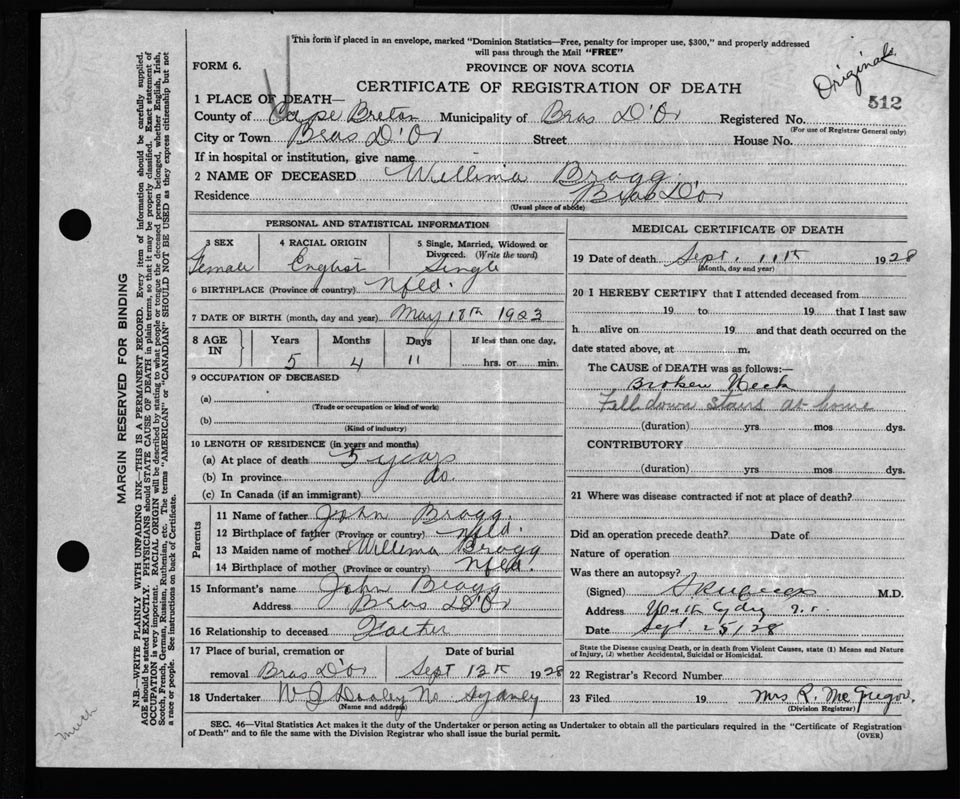 This form if placed in an envelope, marked "Dominion Statistics—Free, penalty for improper use, $300," and properly addressed
will pass through the Mail "FREE"
FORM 6.
PROVINCE OF NOVA SCOTIA
Original
CERTIFICATE OF REGISTRATION OF DEATH
512
1 PLACE OF DEATH—
County of Cape Breton Municipality of Bras D'Or Registered No.
(For use of Registrar General only)
City or Town Bras D'Or Street House No.
If in hospital or institution, give name
2 NAME OF DECEASED Willima Bragg
Residence Bras D'or
(Usual place of abode)
PERSONAL AND STATISTICAL INFORMATION
3 SEX 4 RACIAL ORIGIN 5 Single, Married, Widowed or Divorced. (Write the word)
Female English Single
6 BIRTHPLACE (Province or country) Nfld.
7 DATE OF BIRTH (month, day and year) May 18th 1923
8 AGE IN Years Months Days If less than one day,
5 4 11 hrs. or min.
9 OCCUPATION OF DECEASED
(a)
(Trade or occupation or kind of work)
(b)
(Kind of industry)
10 LENGTH OF RESIDENCE (in years and months)
(a) At place of death 5 years
(b) In province do.
(c) In Canada (if an immigrant)
Parents
11 Name of father John Bragg
12 Birthplace of father (Province or country) Nfld.
13 Maiden name of mother Willima Bragg
14 Birthplace of mother (Province or country) Nfld.
15 Informant's name John Bragg
Address Bras D'Or
16 Relationship to deceased Father
17 Place of burial, cremation or removal Date of burial
Bras D'or Sept 13th 1928
18 Undertaker W J Dooley No. Sydney
(Name and address)
MEDICAL CERTIFICATE OF DEATH
19 Date of death Sept. 11th 1928
(Month, day and year)
20 I HEREBY CERTIFY that I attended deceased from
19 to 19 that I last saw
h alive on 19 and that death occurred on the
date stated above, at m.
The CAUSE of DEATH was as follows:—
Broken Neck
Fell down stairs at home
(duration) yrs mos dys.
CONTRIBUTORY
(duration) yrs mos dys.
21 Where was disease contracted if not at place of death?
Did an operation precede death? Date of
Nature of operation
Was there an autopsy?
(Signed) M.D.
Address North Sydney N.S.
Date Sept. 25/28
State the Disease causing Death, or in death from Violent Causes, state (1) Means and Nature
of Injury, (2) whether Accidental, Suicidal or Homicidal.
22 Registrar's Record Number
23 Filed 19 Mrs R. McGregor
(Division Registrar)
SEC. 46—Vital Statistics Act makes it the duty of the Undertaker or person acting as Undertaker to obtain all the particulars required in the "Certificate of Registration
of Death" and to file the same with the Division Registrar who shall issue the burial permit.
(OVER)
MARGIN RESERVED FOR BINDING
N.B.—WRITE PLAINLY WITH UNFADING INK—THIS IS A PERMANENT RECORD. Every item of information should be carefully supplied.
AGE should be stated EXACTLY. PHYSICIANS should STATE CAUSE OF DEATH in plain terms, so that it may be properly classified. Exact statement of
OCCUPATION is very important. RACIAL ORIGIN will be described by stating to what people or tongue the deceased person belonged, whether English, Irish,
Scotch, French, German, Russian, Ruthenian, etc. The terms "AMERICAN" or "CANADIAN" SHOULD NOT BE USED as they express citizenship but not
a race or people. See instructions on back of Certificate.